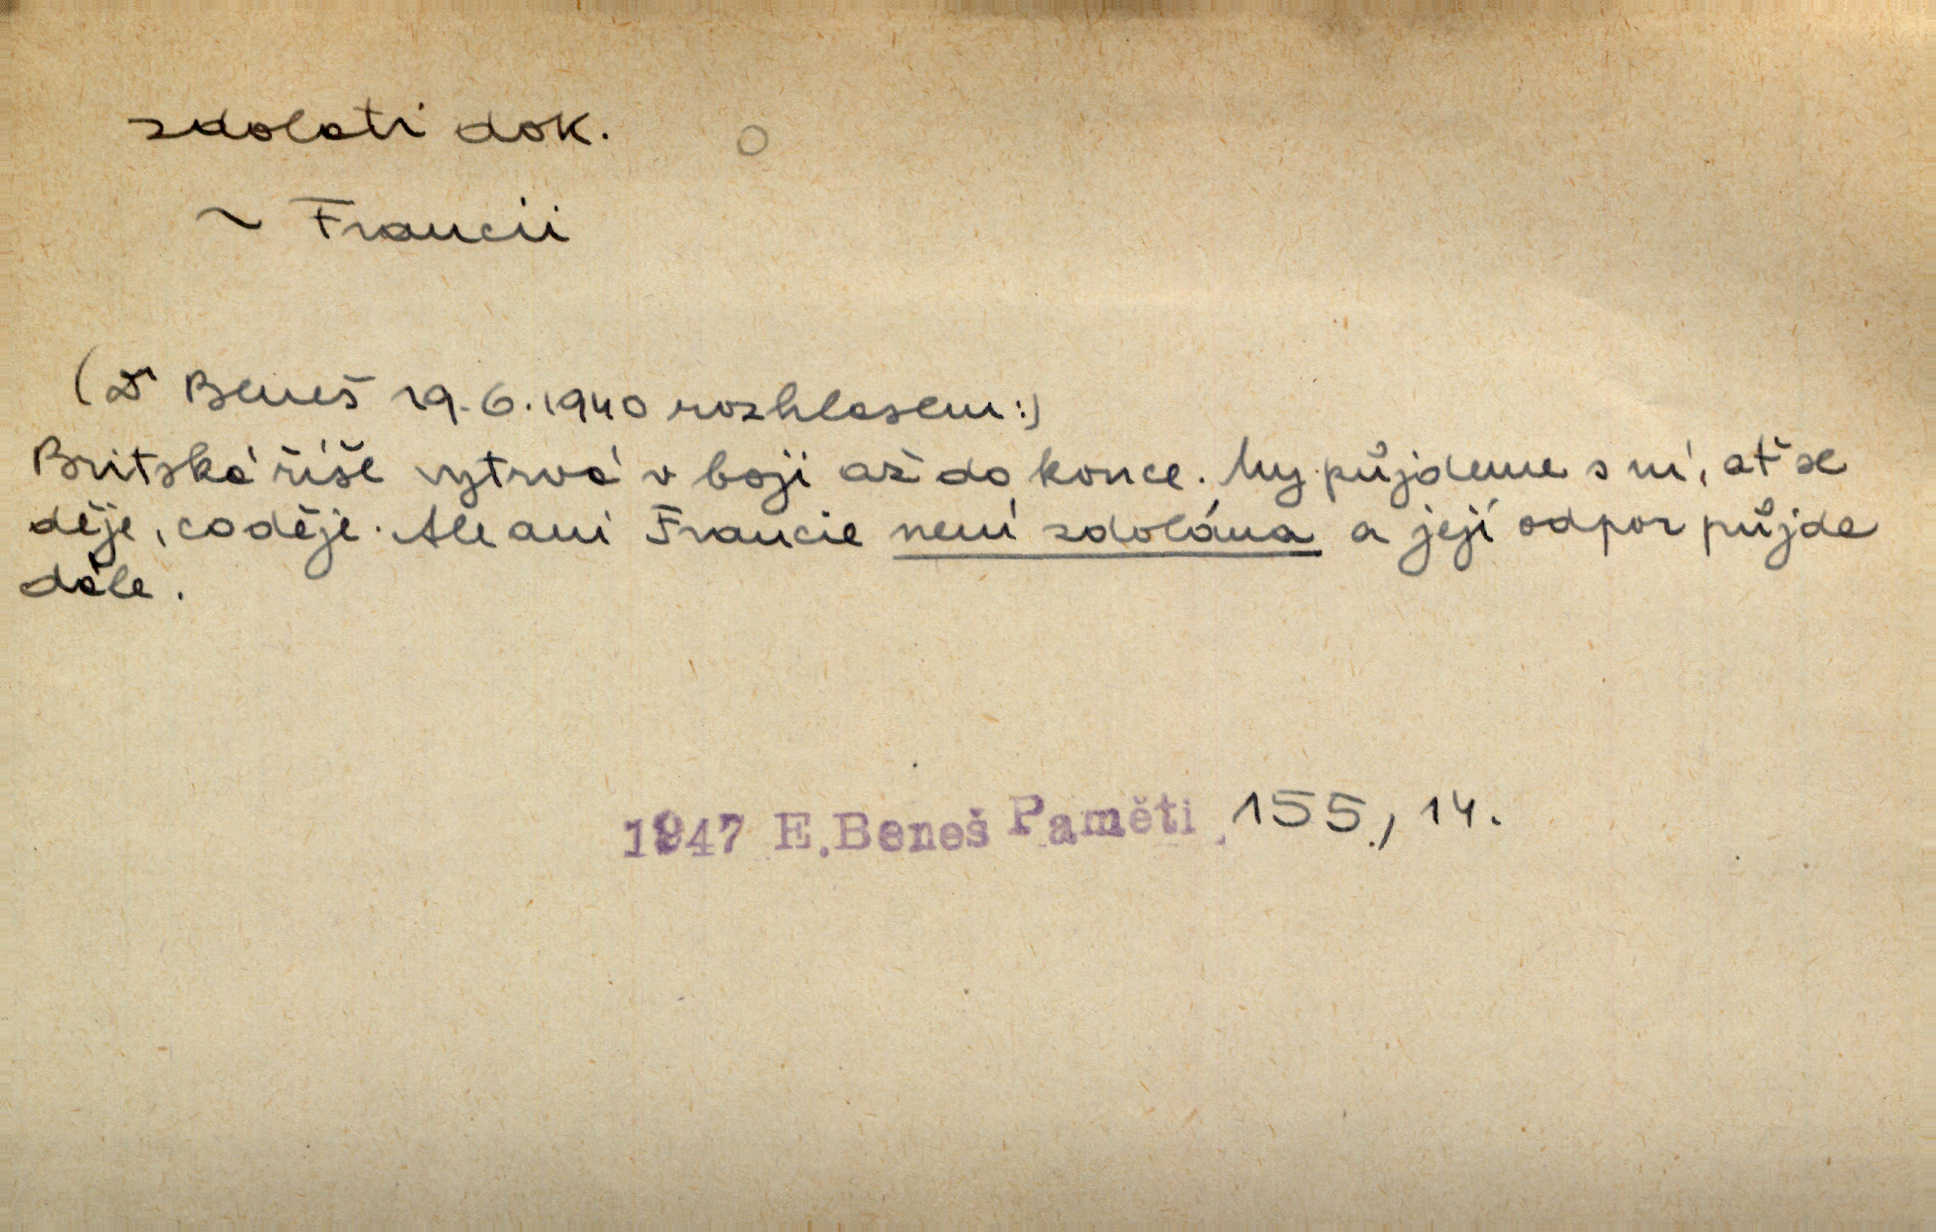 zdolati dok. O
~ Francii
(Dr Beneš 19. 6. 1940 rozhlasem:)
Britská říše vytrvá v boji až do konce. My půjdeme s ní, ať se
děje, co děje. Ale ani Francie není zdolána a její odpor půjde
dále.
1947 E. Beneš Paměti, 155, 14.